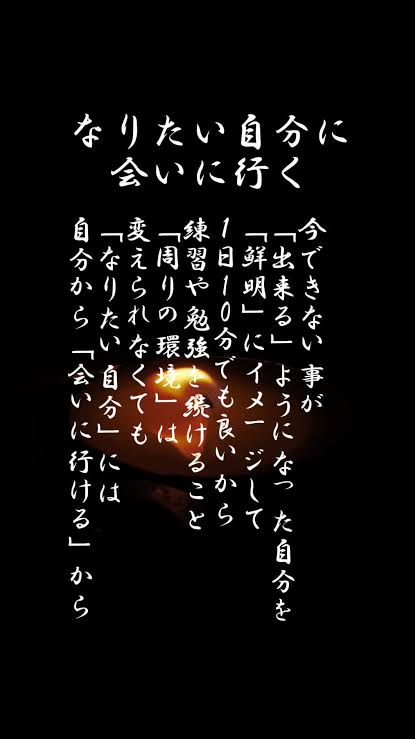 なりたい自分に
会いに行く
今できない事が
「出来る」ようになった自分を
「鮮明」にイメージして
1日10分でも良いから
練習や勉強を続けること
「周りの環境」は
変えられなくても
「なりたい自分」には
自分から「会いに行ける」から